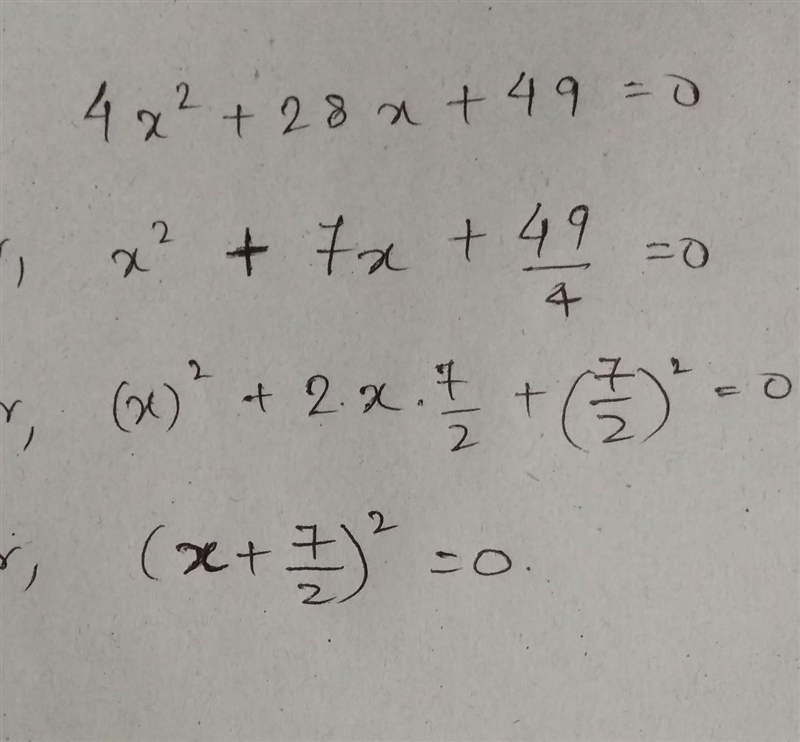 4x² + 28x + 49 = 0
r, x² + 7x + 49/4 = 0
r, (x)² + 2.x.7/2 + (7/2)² = 0
r, (x + 7/2)² = 0.